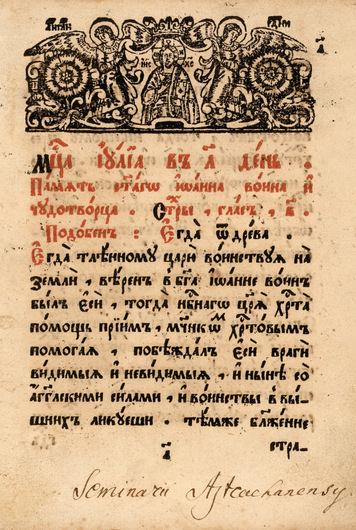 а҃
ІИС ХС
Мц҃а іꙋ́лїа въ л҃ де́нь .
Па́мѧть ст҃а́гѡ і҆ѡа́нна во́ина и҆
чꙋдотво́рца . Стры̑ , гла́съ , в҃ .
Подо́бенъ : Е҆гда̀ ѿ дре́ва .
Е҆гда̀ тлѣ́нномꙋ царю̀ во́инствꙋѧ на
землѝ , вѣ́ренъ в бг҃а і҆ѡа́нне во́инъ
бы́лъ є҆сѝ , тогда̀ и҆ нбⷭ҇наго цр҃ѧ̀ хрⷭ҇та̀
по́мощь прїи́мъ , мч҃нкѡⷨ хрⷭ҇то́вымъ
помога́ѧ , побѣжда́лъ є҆сѝ врагѝ
ви́димыѧ и҆ неви́димыѧ , и҆ ны́нѣ со
а҆́гг҃лскими си́лами , и҆ во́инствы в вы́-
шнихъ ликꙋ́еши . тѣ́мже бл҃же́нне
стра-
а҃
Seminarii Astrachanensy